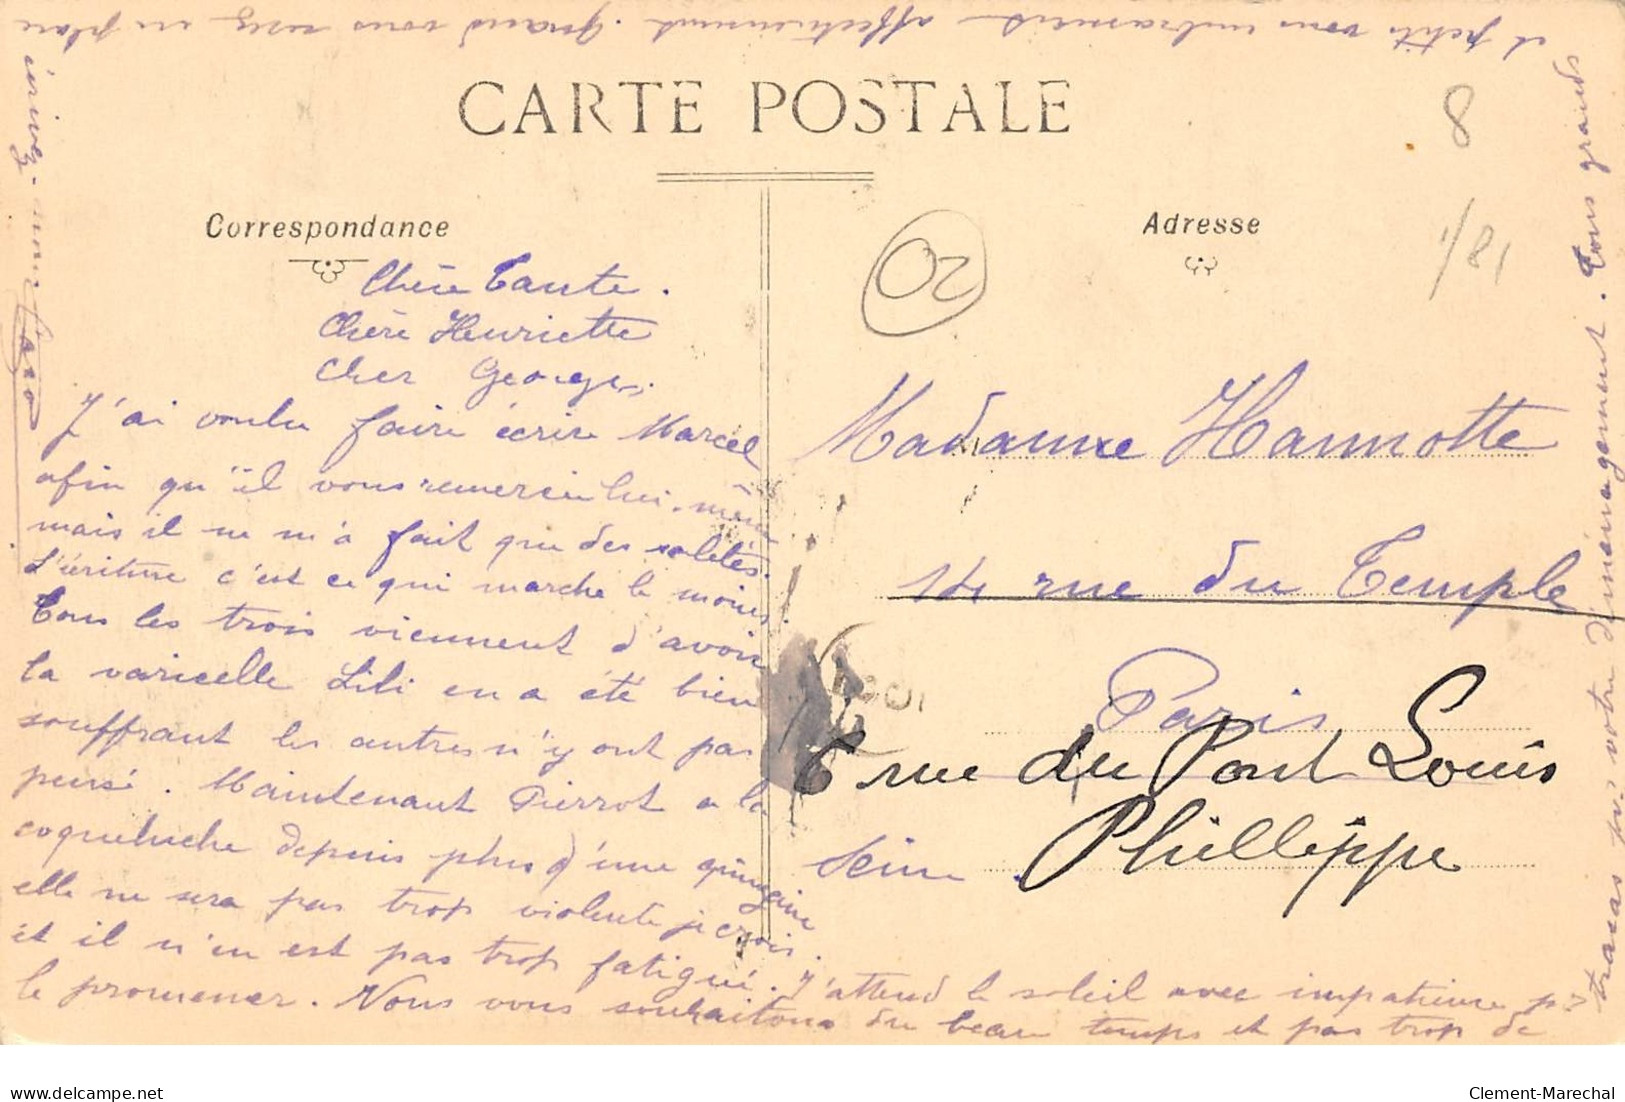 CARTE POSTALE
Correspondance
Adresse
8
1/81
20
Chère Tante.
Chère Henriette
Cher Georges.
J'ai voulu faire écrire Marcel
afin qu'il vous remercie lui-même
mais il ne m'a fait que des saletés.
L'écriture c'est ce qui marche le moins.
Tous les trois viennent d'avoir
la varicelle Lili en a été bien
souffrant les autres n'y ont pas
pensé. Maintenant Pierrot a la
coqueluche depuis plus d'une quinzaine
elle ne sera pas trop violente je crois.
et il n'en est pas trop fatigué. J'attend le soleil avec impatience pr
le promener. Nous vous souhaitons du beau temps et pas trop de
tracas pr votre déménagement. Tous grands
et petits vous embrassons affectueusement. Quand vous serez en place
écrivez-nous
Madame Hannotte
14 rue du Temple
Paris
6 rue du Pont Louis
Phillippe
Seine.
delcampe.net
Clement-Marechal